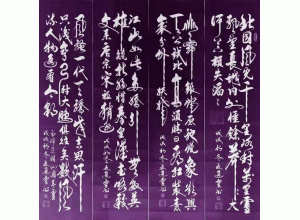 北国风光千里冰封万里雪
飘望长城内外惟余莽莽大
河上下顿失滔滔
山舞银蛇原驰蜡象欲与
天公试比高须晴日看红装素
裹分外妖娆
江山如此多娇引无数英
雄竞折腰惜秦皇汉武略输
文采唐宗宋祖稍逊
风骚一代天骄成吉思汗
只识弯弓射大雕俱往矣数风
流人物还看今朝